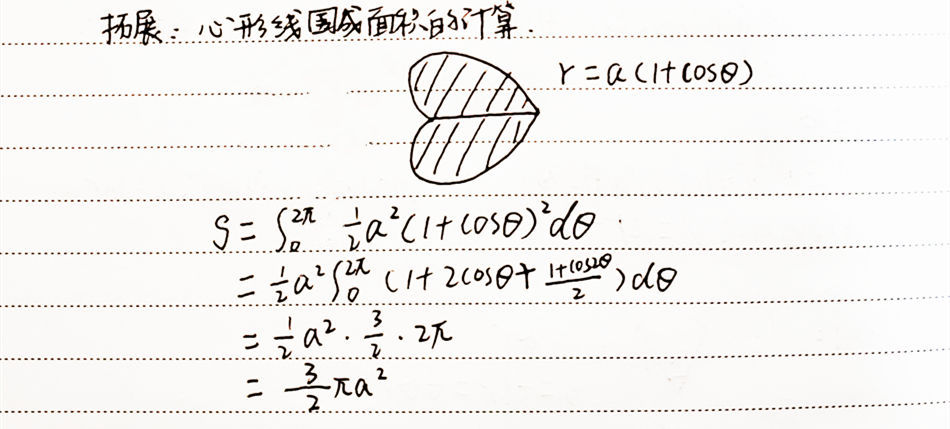 拓展：心形线围成面积的计算.
r = a(1+cosθ)
S = ∫₀^{2π} 1/2 a²(1+cosθ)² dθ
= 1/2 a² ∫₀^{2π} (1+2cosθ+ (1+cos2θ)/2) dθ
= 1/2 a² · 3/2 · 2π
= 3/2 πa²